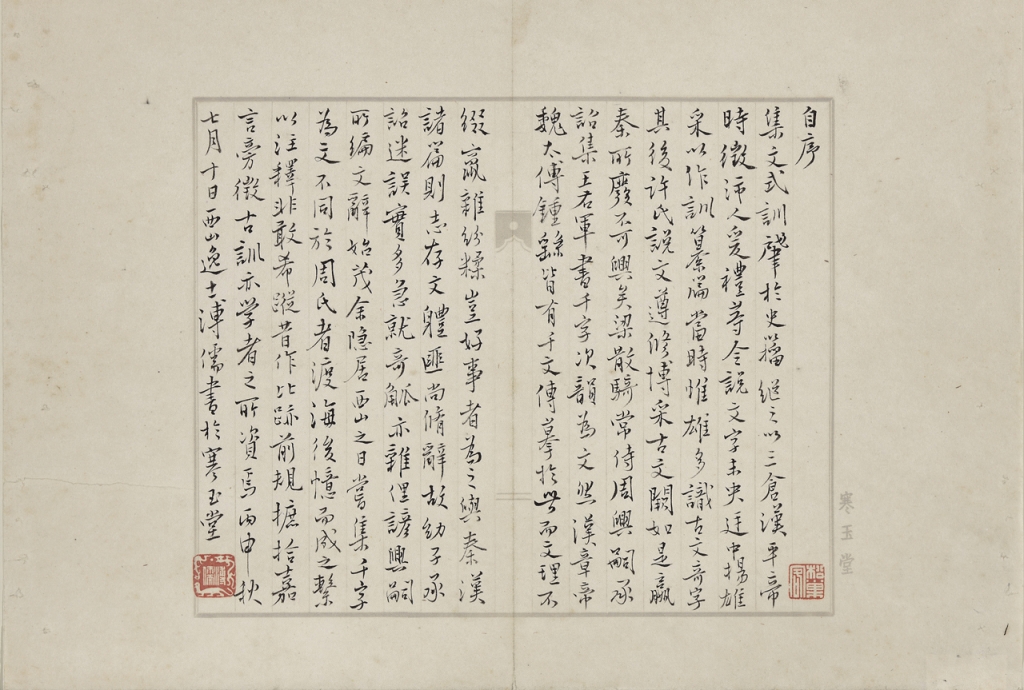 自序
集文式訓肇於史籀繼之以三倉漢平帝
時徵沛人爰禮等令說文字未央廷中揚雄
采以作訓纂篇當時惟雄多識古文奇字
其後許氏說文遵修博采古文闕如是嬴
秦所廢不可興矣梁散騎常侍周興嗣承
詔集王右軍書千字次韻為文然漢章帝
魏太傅鍾繇皆有千文傳摹於世而文理不
綴羸雜紛糅豈好事者為之與秦漢
諸篇則志存文體匪尚脩辭故幼子承
詔迷誤實多急就奇觚亦雜俚諺興嗣
所編文辭始茂余隱居西山之日嘗集千字
為文不同於周氏者渡海後憶而成之繫
以注釋非敢希蹤昔作比跡前規摭拾嘉
言旁徵古訓亦学者之所資焉丙申秋
七月十日西山逸士溥儒書於寒玉堂
寒玉堂